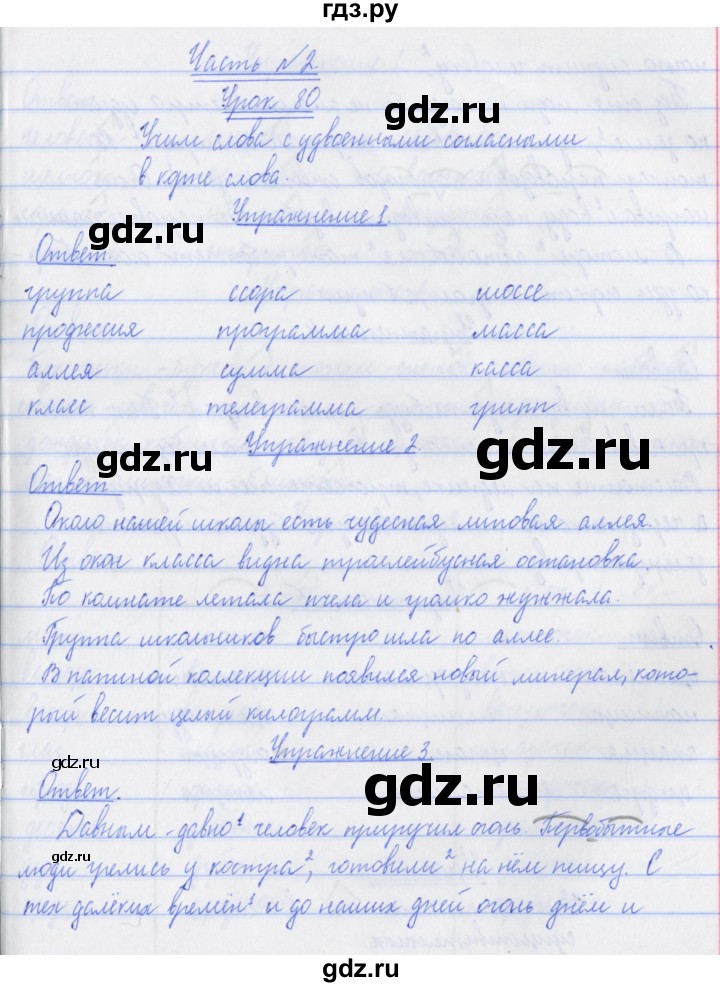 гдз.ру
Часть №2.
Урок 80.
Учим слова с удвоенными согласными
в корне слова.
Упражнение 1.
Ответ.
группа ссора шоссе
профессия программа масса
аллея сумма касса
класс телеграмма грипп
Упражнение 2.
Ответ
Около нашей школы есть чудесная липовая аллея.
Из окон класса видна троллейбусная остановка.
По комнате летала пчела и громко жужжала.
Группа школьников быстро шла по аллее.
В папиной коллекции появился новый минерал, кото-
рый весит целый килограмм.
Упражнение 3.
Ответ.
Давным-давно¹ человек приручил огонь. Первобытные
люди грелись у костра², готовили² на нём пищу. С
тех далёких времён¹ и до наших дней огонь днём и
gdz.ru
gdz.ru
gdz.ru
gdz.ru
gdz.ru
gdz.ru
gdz.ru
gdz.ru
gdz.ru